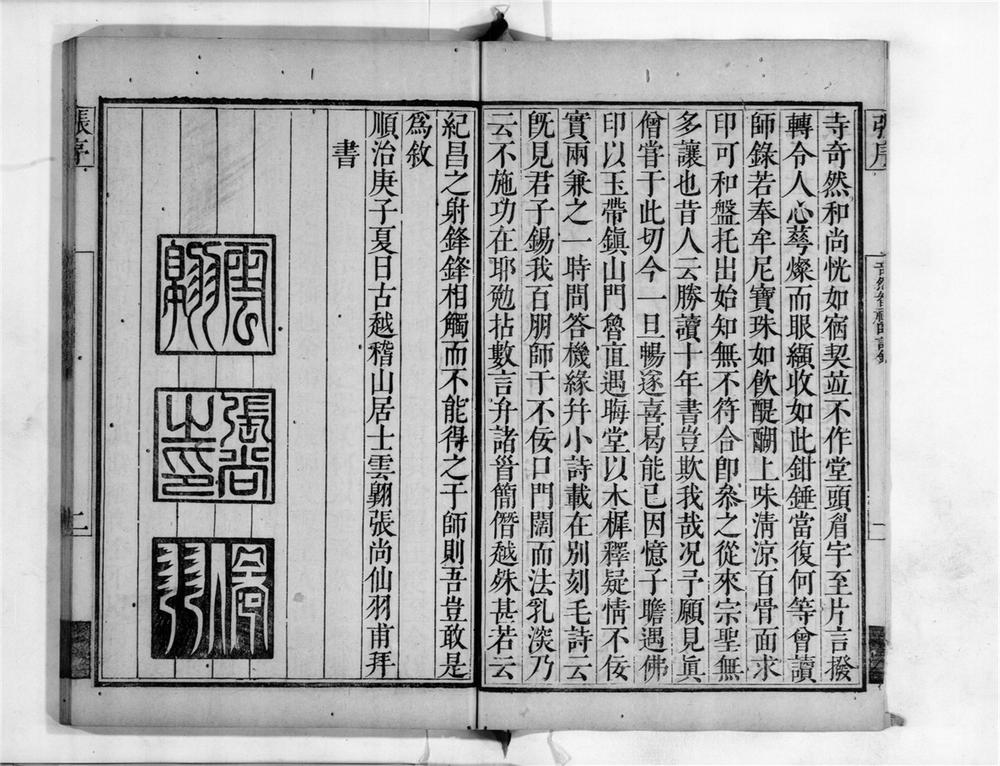 張序
寺奇然和尚恍如宿契並不作堂頭眉宇至片言撥
轉令人心蕚燦而眼纈收如此鉗錘當復何等會讀
師錄若奉牟尼寶珠如飲醍醐上味淸凉百骨面求
印可和盤托出始知無不符合卽叅之從來宗聖無
多讓也昔人云勝讀十年書豈欺我哉况予願見眞
僧嘗于此切今一旦暢遂喜曷能已因憶子瞻遇佛
印以玉帶鎭山門魯直遇晦堂以木樨釋疑情不佞
實兩兼之一時問答機緣幷小詩載在別刻毛詩云
旣見君子錫我百朋師于不佞口門闊而法乳湥乃
云不施功在耶勉拈數言弁諸簡僭越殊甚若云
紀昌之射鋒鋒相觸而不能得之于師則吾豈敢是
爲敘
順治庚子夏日古越稽山居士雲翺張尚仙羽甫拜
書
張序
二
雲翺
張尚之印
仙羽